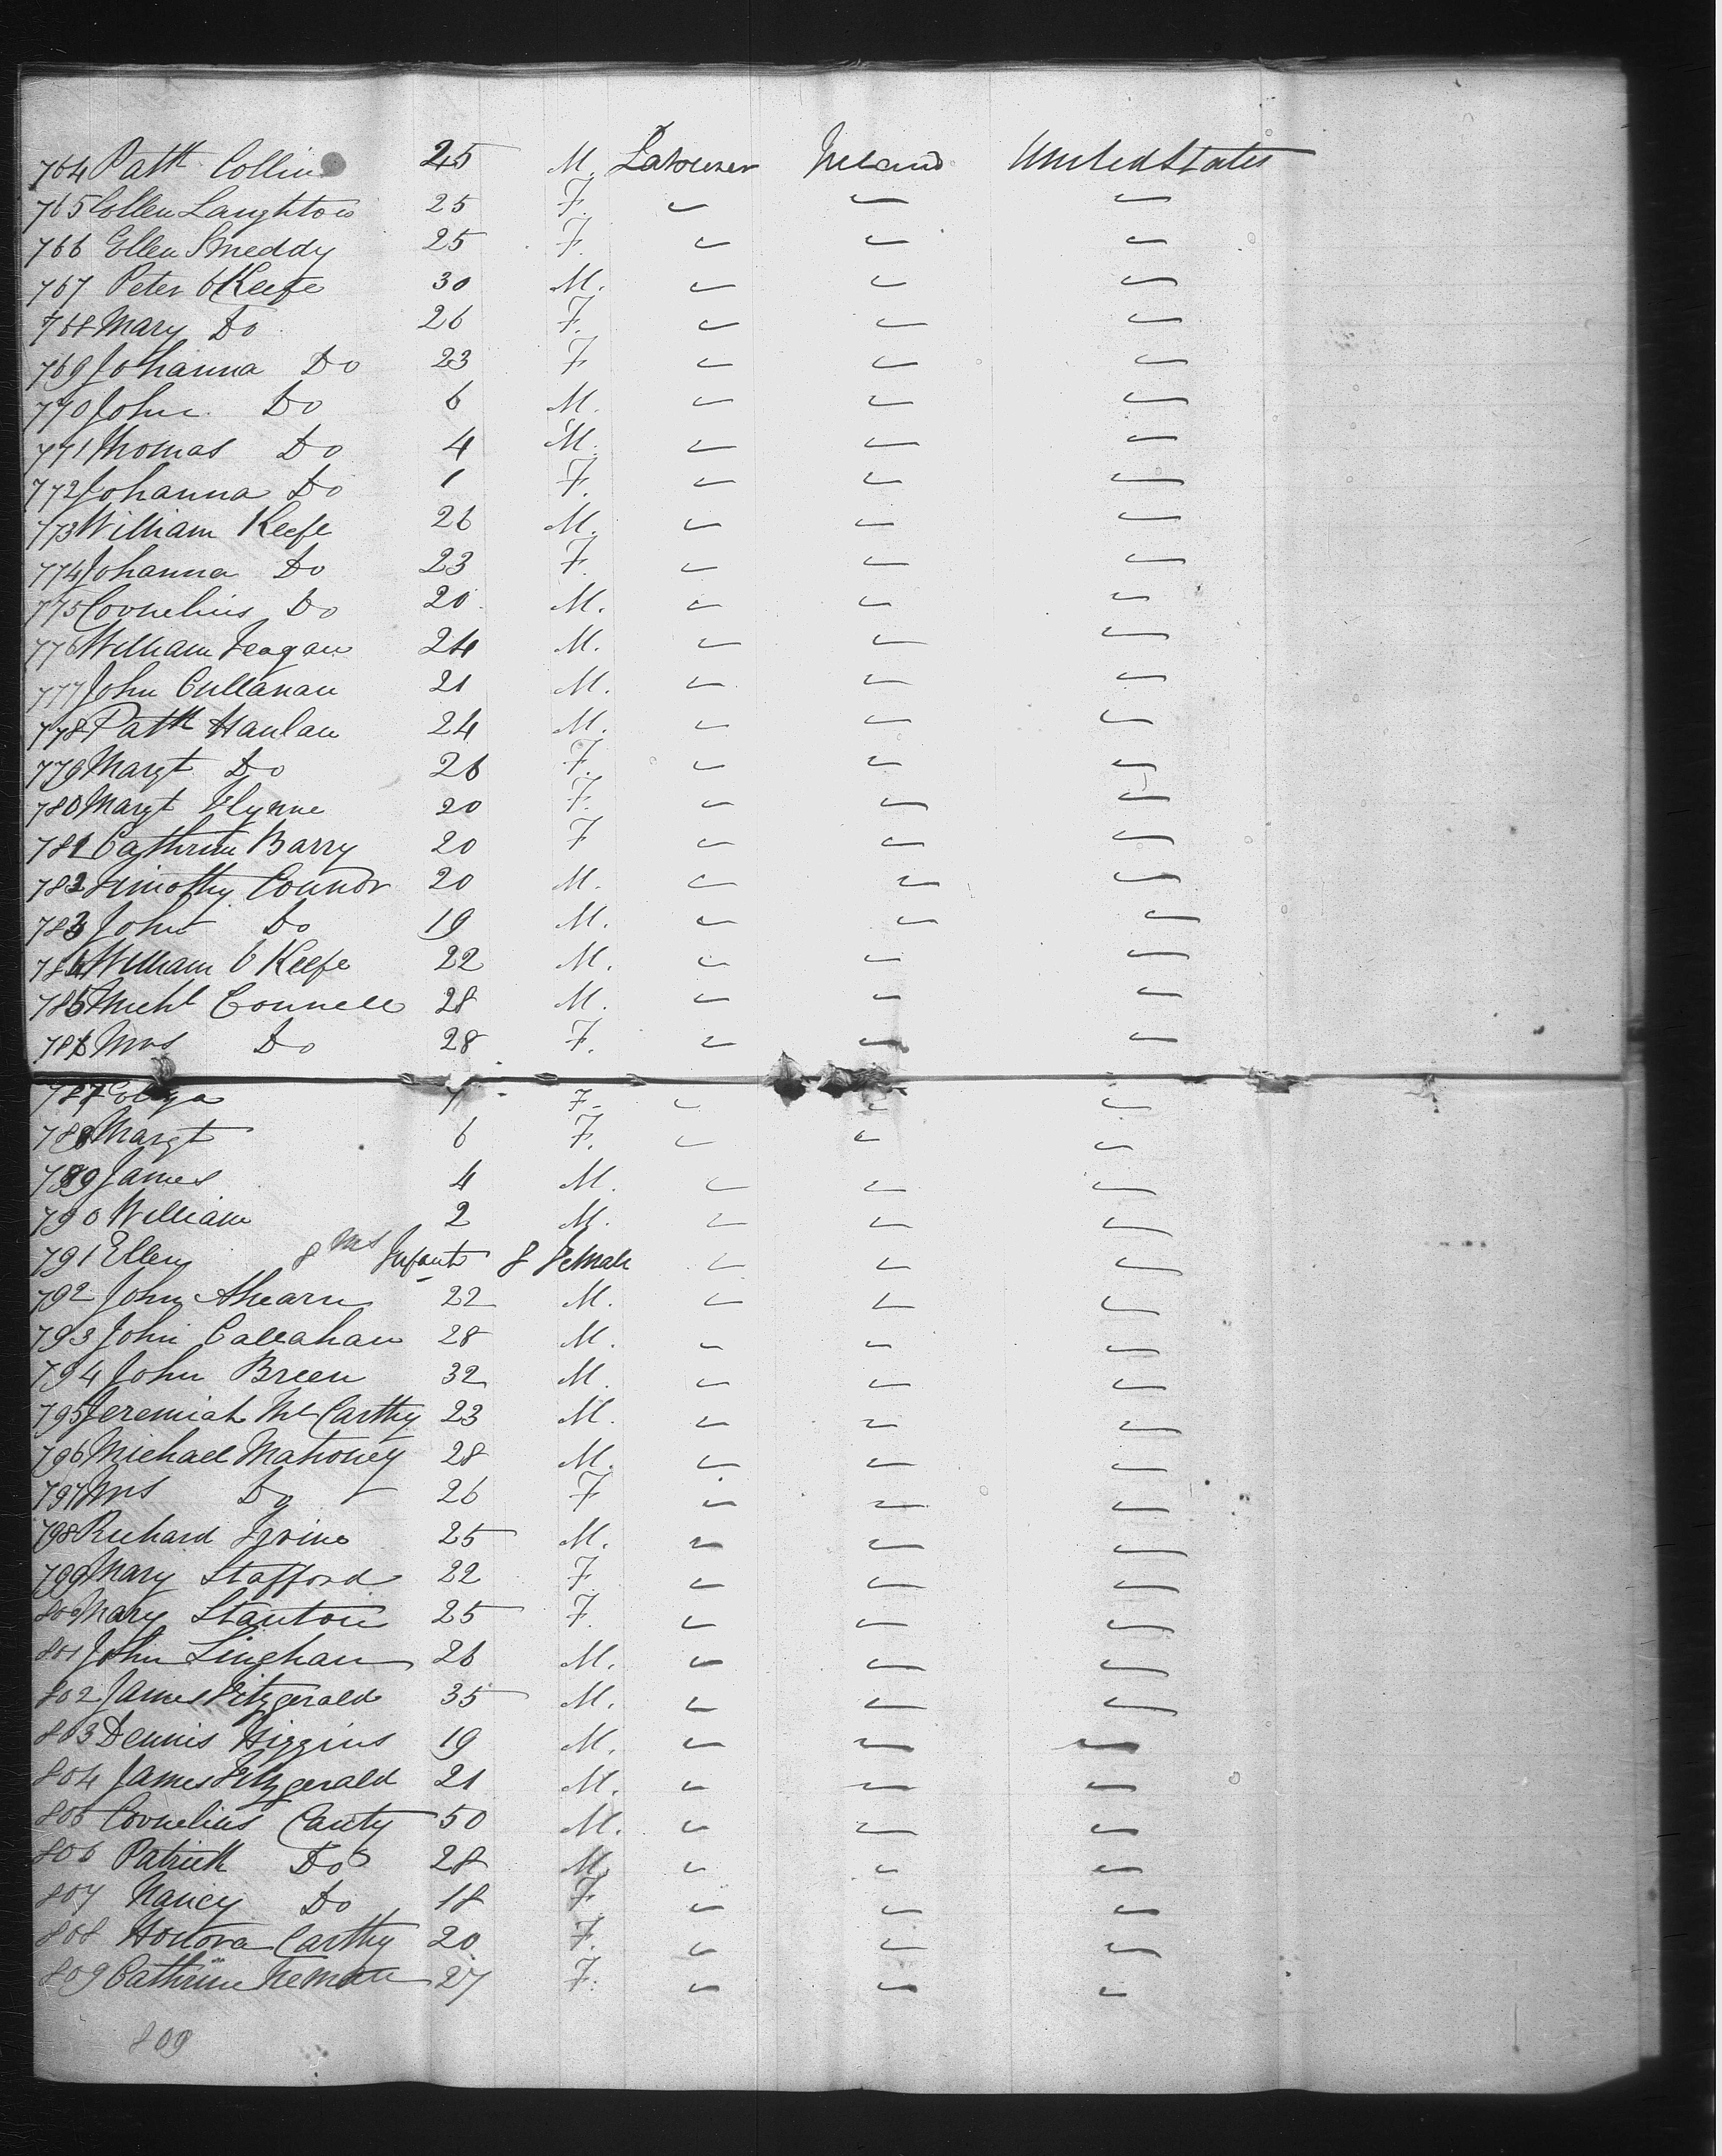 764 Patk Collins 25 M. Labourer Ireland United States
765 Ellen Laughton 25 F. 〃 〃 〃
766 Ellen Smeddy 25 F. 〃 〃 〃
767 Peter O Keefe 30 M. 〃 〃 〃
768 Mary Do 26 F. 〃 〃 〃
769 Johanna Do 23 F 〃 〃 〃
770 John Do 6 M. 〃 〃 〃
771 Thomas Do 4 M. 〃 〃 〃
772 Johanna Do 1 F. 〃 〃 〃
773 William Keefe 26 M. 〃 〃 〃
774 Johanna Do 23 F. 〃 〃 〃
775 Cornelius Do 20 M. 〃 〃 〃
776 William Feagan 24 M. 〃 〃 〃
777 John Cullanan 21 M. 〃 〃 〃
778 Patk Hanlan 24 M. 〃 〃 〃
779 Margt Do 26 F. 〃 〃 〃
780 Margt Flynne 20 F. 〃 〃 〃
781 Cathrine Barry 20 F 〃 〃 〃
782 Timothy Connor 20 M. 〃 〃 〃
783 John Do 19 M. 〃 〃 〃
784 William O Keefe 22 M. 〃 〃 〃
785 Michl Connell 28 M. 〃 〃 〃
786 Mrs Do 28 F. 〃 〃 〃
787 Eliza 7 F. 〃 〃 〃
788 Margt 6 F. 〃 〃 〃
789 James 4 M. 〃 〃 〃
790 William 2 M. 〃 〃 〃
791 Ellen 8 Ms Infant 8 female 〃 〃 〃
792 John Ahearn 22 M. 〃 〃 〃
793 John Callahan 28 M. 〃 〃 〃
794 John Breen 32 M. 〃 〃 〃
795 Jeremiah McCarthy 23 M. 〃 〃 〃
796 Michael Mahoney 28 M. 〃 〃 〃
797 Mrs Do 26 F 〃 〃 〃
798 Richard Irvine 25 M. 〃 〃 〃
799 Mary Stafford 22 F. 〃 〃 〃
800 Mary Stanton 25 F. 〃 〃 〃
801 John Linghan 26 M. 〃 〃 〃
802 James Fitzgerald 35 M. 〃 〃 〃
803 Dennis Higgins 19 M. 〃 〃 〃
804 James Fitzgerald 21 M. 〃 〃 〃
805 Cornelius Canty 50 M. 〃 〃 〃
806 Patrick Do 28 M. 〃 〃 〃
807 Nancy Do 18 F. 〃 〃 〃
808 Honora Carthy 20 F. 〃 〃 〃
809 Cathrine 27 F. 〃 〃 〃
809